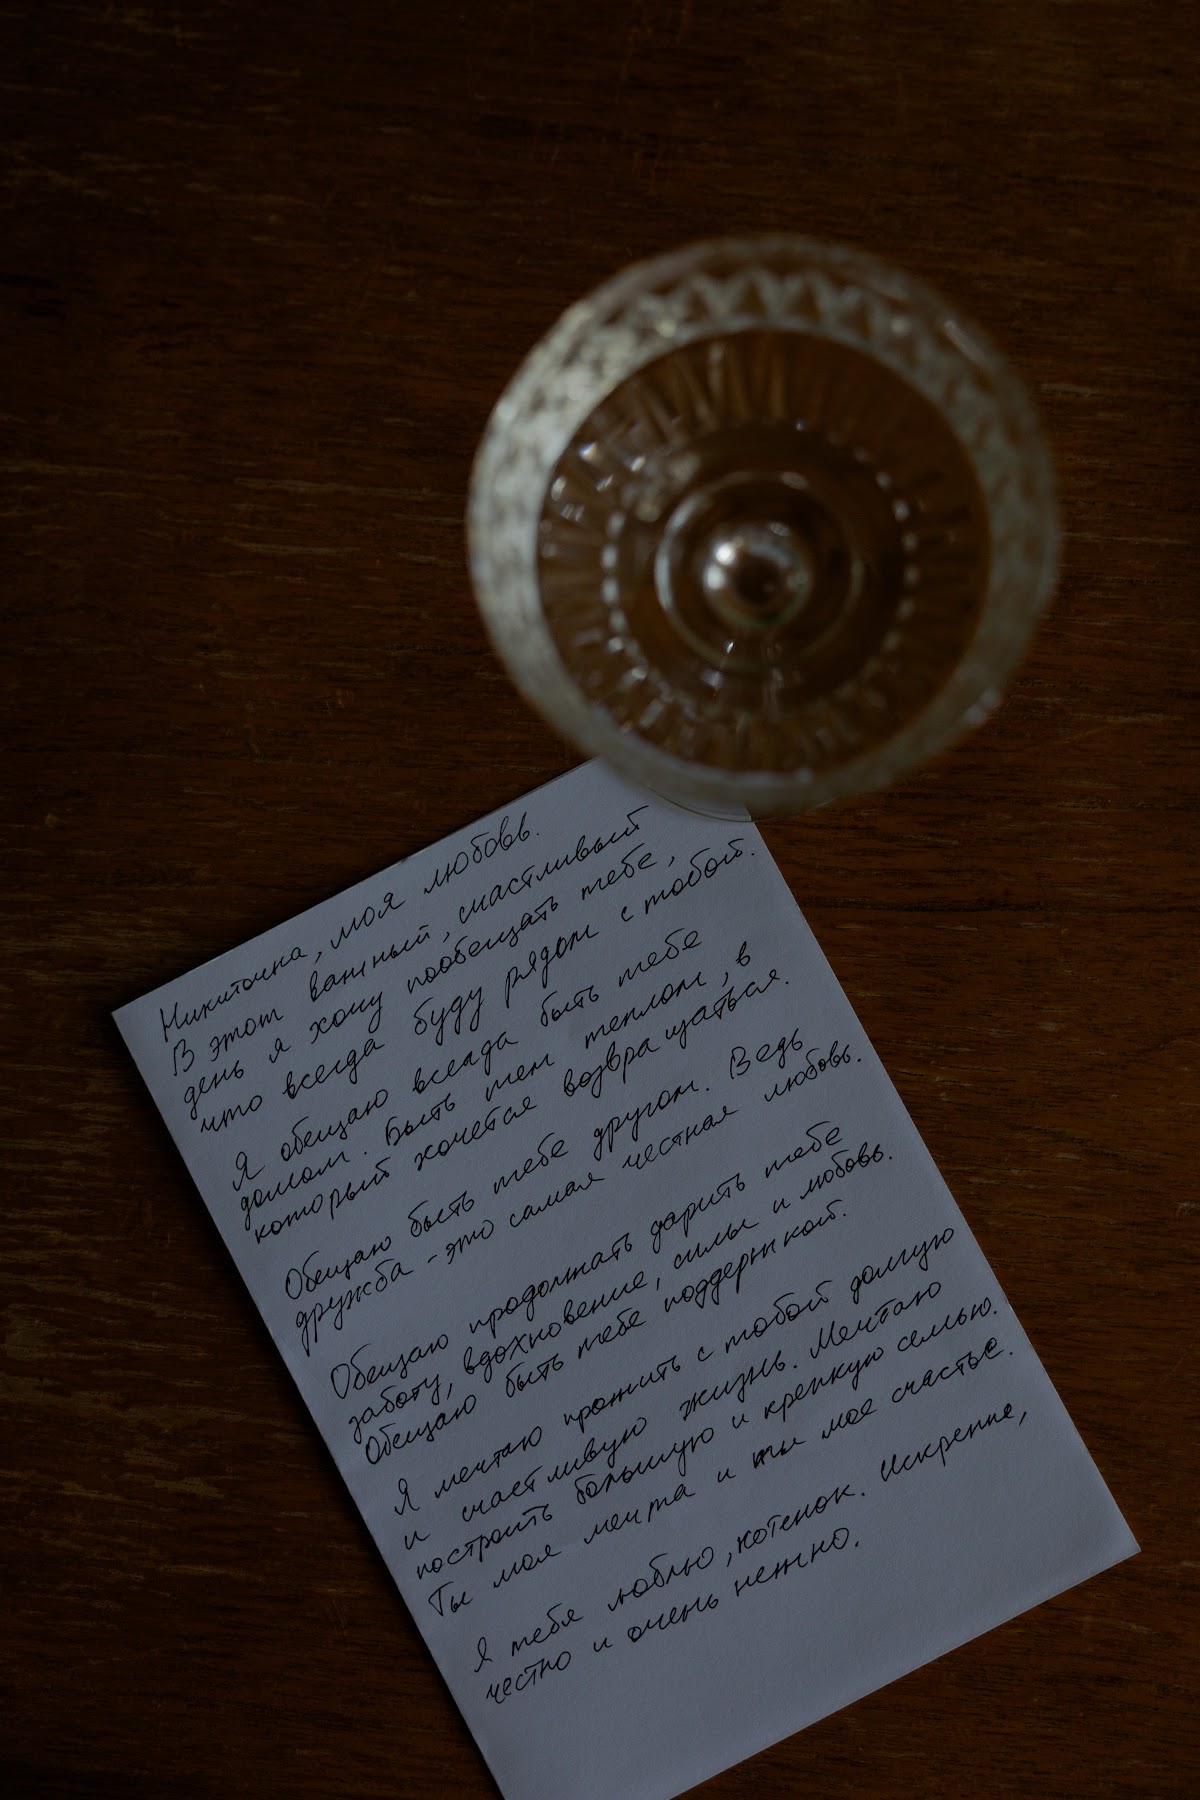 Никиточка, моя любовь.
В этот важный, счастливый
день я хочу пообещать тебе,
что всегда буду рядом с тобой.
Я обещаю всегда быть тебе
домом. Быть тем теплом, в
который хочется возвращаться.
Обещаю быть тебе другом. Ведь
дружба - это самая честная любовь.
Обещаю продолжать дарить тебе
заботу, вдохновение, силы и любовь.
Обещаю быть тебе поддержкой.
Я мечтаю прожить с тобой долгую
и счастливую жизнь. Мечтаю
построить большую и крепкую семью.
Ты моя мечта и ты мое счастье.
Я тебя люблю, котенок. Искренне,
честно и очень нежно.